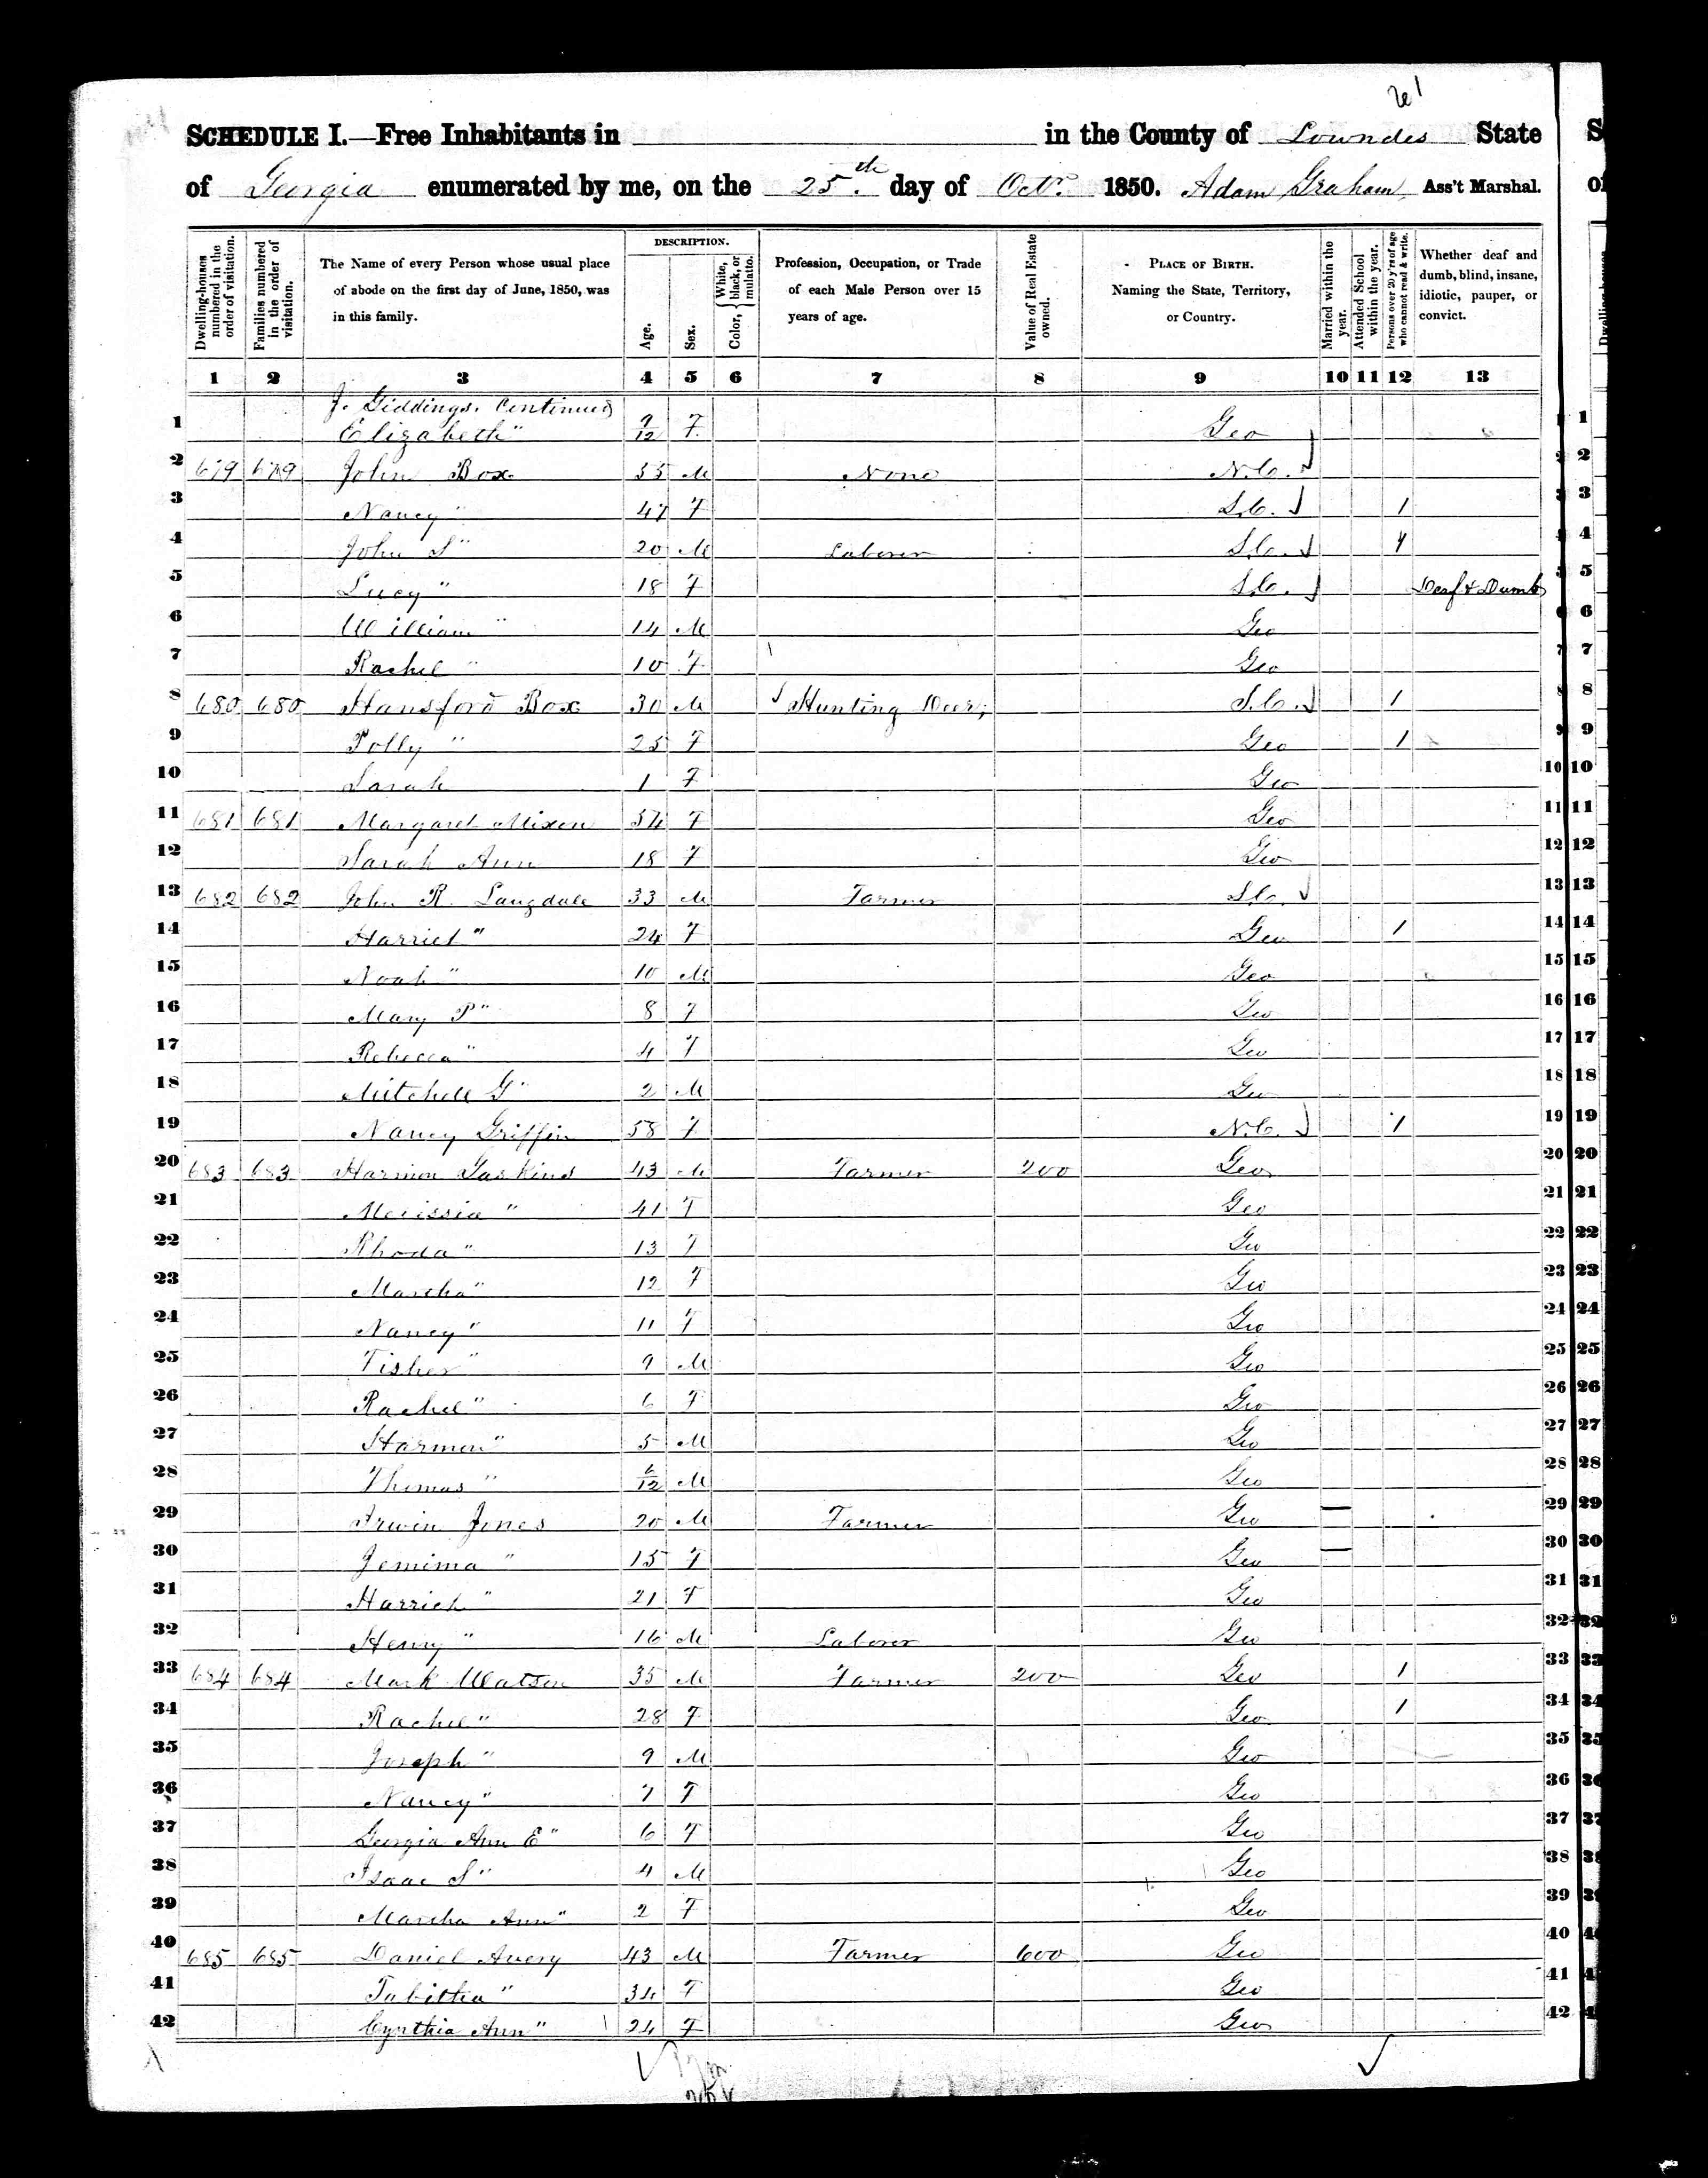 SCHEDULE I.—Free Inhabitants in in the County of Lowndes State
of Georgia enumerated by me, on the 25th. day of Octr. 1850. Adam Graham, Ass't Marshal.
Dwelling-houses numbered in the order of visitation.
Families numbered in the order of visitation.
The Name of every Person whose usual place of abode on the first day of June, 1850, was in this family.
DESCRIPTION.
Age.
Sex.
Color, { White, black, or mulatto.
Profession, Occupation, or Trade of each Male Person over 15 years of age.
Value of Real Estate owned.
PLACE OF BIRTH. Naming the State, Territory, or Country.
Married within the year.
Attended School within the year.
Persons over 20 y'rs of age who cannot read & write.
Whether deaf and dumb, blind, insane, idiotic, pauper, or convict.
1 2 3 4 5 6 7 8 9 10 11 12 13
J. Giddings. Continued
1 Elizabeth " 9/12 F Geo 1
2 679 679 John Box 55 M None N.C. 2
3 Nancy " 47 F S.C. 1 3
4 John S " 20 M Laborer S.C. 1 4
5 Lucy " 18 F S.C. Deaf & Dumb 5
6 William " 14 M Geo 6
7 Rachel " 10 F Geo 7
8 680 680 Hansford Box 30 M Hunting Deer, S.C. 1 8
9 Polly " 25 F Geo 1 9
10 Sarah 1 F Geo 10
11 681 681 Margaret Mixen 54 F Geo 11
12 Sarah Ann 18 F Geo 12
13 682 682 John R. Langdale 33 M Farmer S.C. 13
14 Harriet " 24 F Geo 1 14
15 Noah " 10 M Geo 15
16 Mary P " 8 F Geo 16
17 Rebecca " 4 F Geo 17
18 Mitchell G " 2 M Geo 18
19 Nancy Griffin 58 F N.C. 1 19
20 683 683 Harmon Gaskins 43 M Farmer 200 Geo 20
21 " 41 F Geo 21
22 Rhoda " 13 F Geo 22
23 Martha " 12 F Geo 23
24 Nancy " 11 F Geo 24
25 Fisher " 9 M Geo 25
26 Rachel " 6 F Geo 26
27 Harmon " 5 M Geo 27
28 Thomas " 6/12 M Geo 28
29 Irwin Jones 20 M Farmer Geo — 29
30 Jemima " 15 F Geo — 30
31 Harriet " 21 F Geo 31
32 Henry " 16 M Laborer Geo 32
33 684 684 Mark Watson 35 M Farmer 200 Geo 1 33
34 Rachel " 28 F Geo 1 34
35 Joseph " 9 M Geo 35
36 Nancy " 7 F Geo 36
37 Georgia Ann E " 6 F Geo 37
38 Isaac S " 4 M Geo 38
39 Martha Ann " 2 F Geo 39
40 685 685 Daniel Avery 43 M Farmer 600 Geo 40
41 Tabitha " 34 F Geo 41
42 Cynthia Ann " 24 F Geo 42